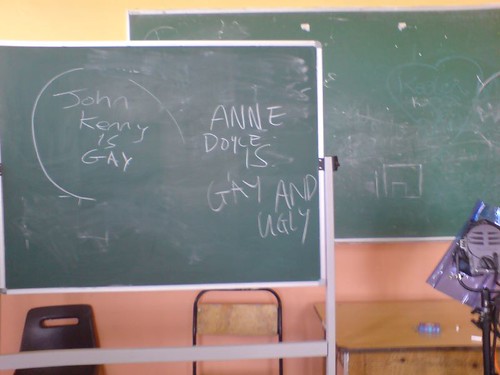 John
Kenny
is
GAY
ANNE
DOYLE
IS
GAY AND
UGLY